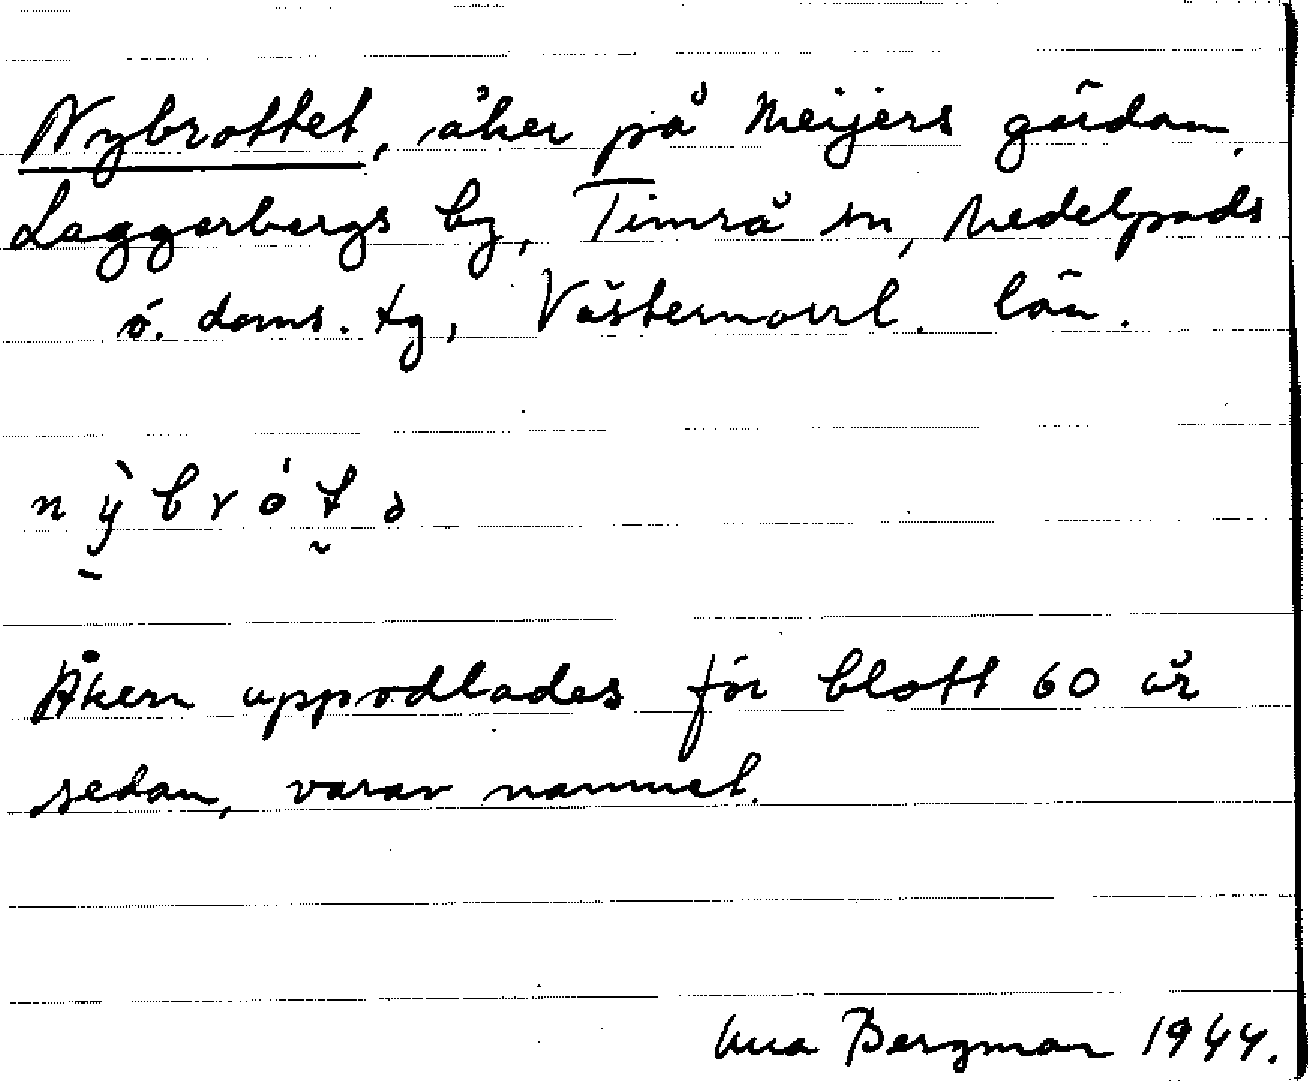 Nybrottet, åker på Meijers gärdan.
Laggarbergs by, Timrå sn, Medelpads
ö. doms. tg, Västernorrl. län.
n ỳ b r ó t ə
Åkern uppodlades för blott 60 år
sedan, varav namnet.
Bergman 1944.